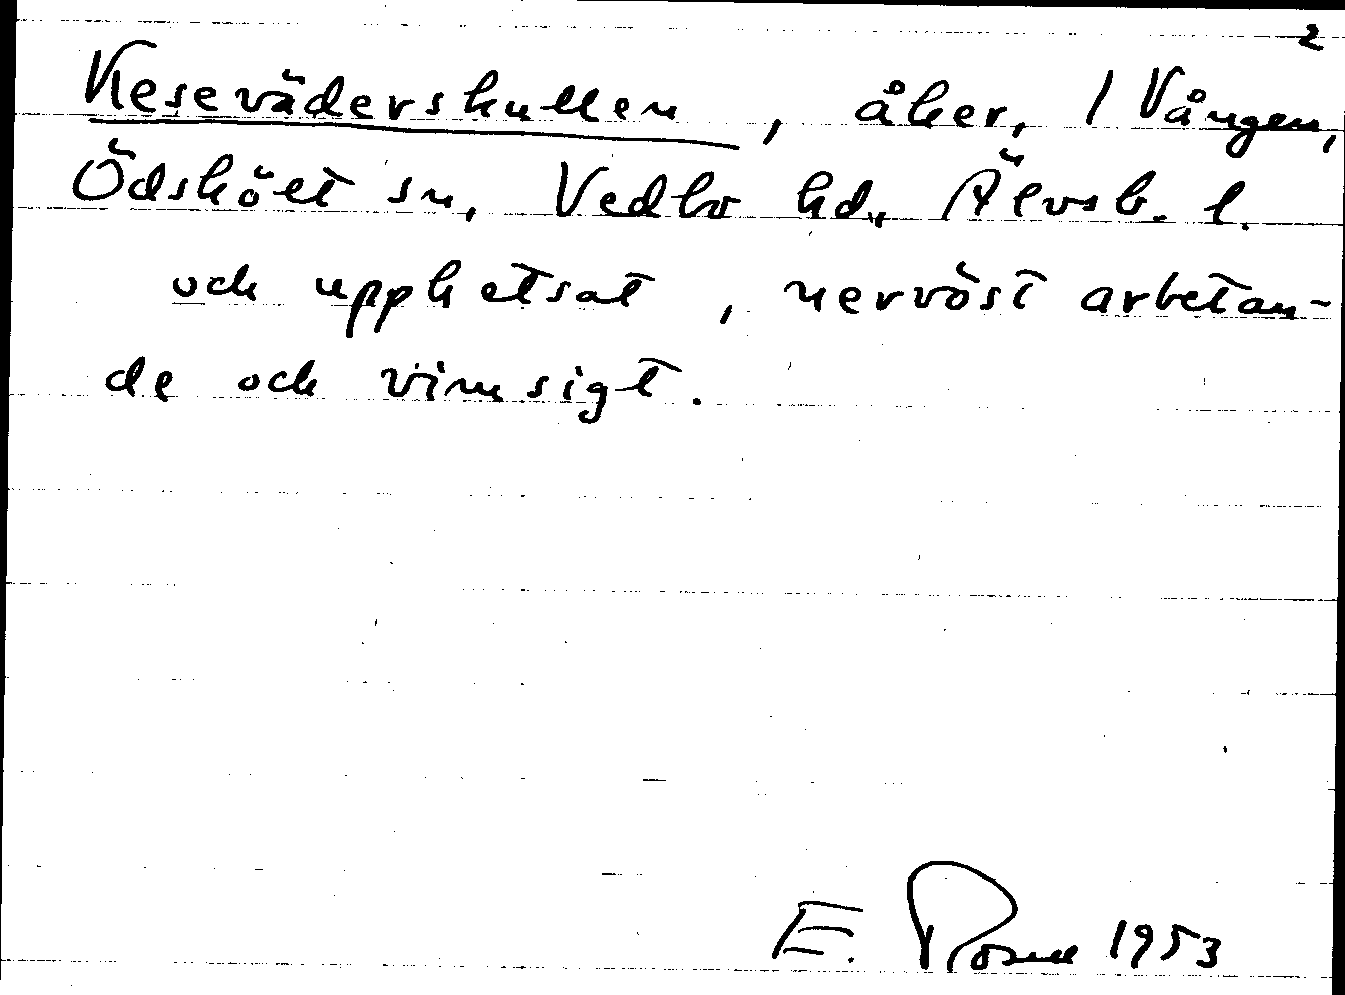 2
Keseväderskullen, åker, 1 Vången,
Ödskölt sn, Vedbo hd, Älvsb. l.
och upphetsat, nervöst arbetan-
de och vimsigt.
E. Rosell 1953